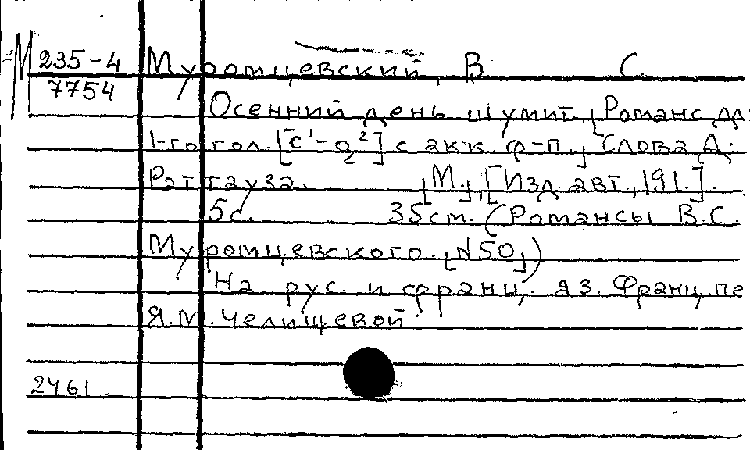 М 235-4 Муромцевский, В. С.
7754
Осенний день шумит. [Романс дл
1-го гол. [c¹-g²] с акк. ф-п.] Слова Д.
Ратгауза. [М.], [Изд. авт., 191.].
5 с. 35 см. (Романсы В.С.
Муромцевского. [N50])
На рус. и франц. яз. Франц. пе
Я.М. Челищевой.
2461